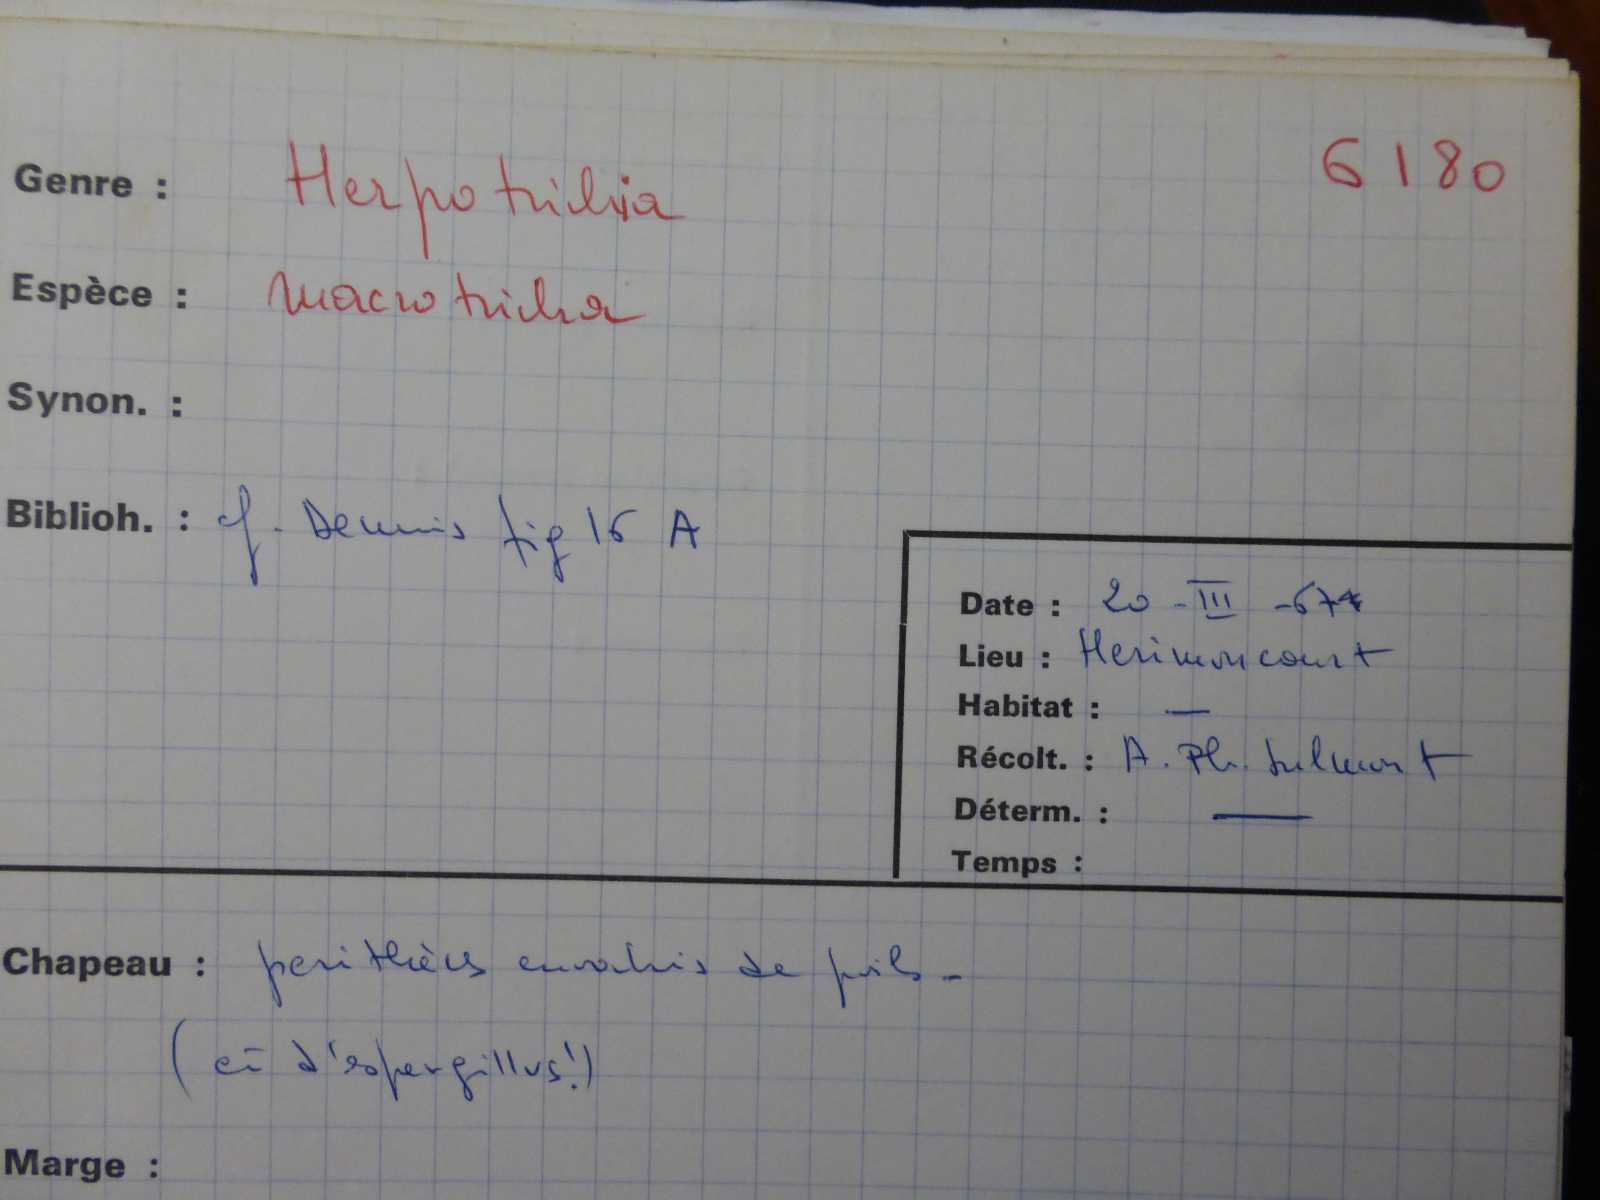 6180
Genre : Herpotrichia
Espèce : macrotricha
Synon. :
Biblioh. : cf. Dennis fig 16 A
Date : 20 - III -
Lieu : Herimoncourt
Habitat : —
Récolt. : A. Ph.
Déterm. : —
Temps :
Chapeau : perithèces envahis de poils -
( d'aspergillus!)
Marge :